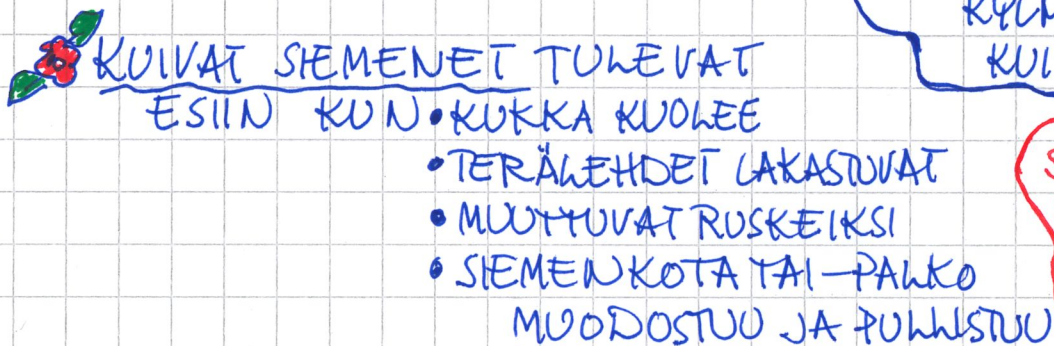 KUIVAT SIEMENET TULEVAT
ESIIN KUN • KUKKA KUOLEE
• TERÄLEHDET LAKASTUVAT
• MUUTTUVAT RUSKEIKSI
• SIEMENKOTA TAI –PALKO
MUODOSTUU JA PULLISTUU